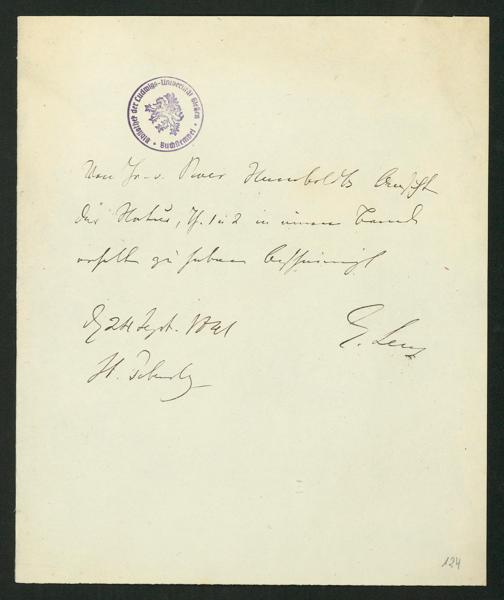 Bibliothek der Ludwigs-Universität Gießen • Buchstempel •
Von Hr. v. Baer Humboldts Ansicht
der Natur, Th. 1 u 2 in einem Band
erhalten zu haben bescheinigt
d. 24 Sept. 1841
E. Lenz
St. Petersbg
124